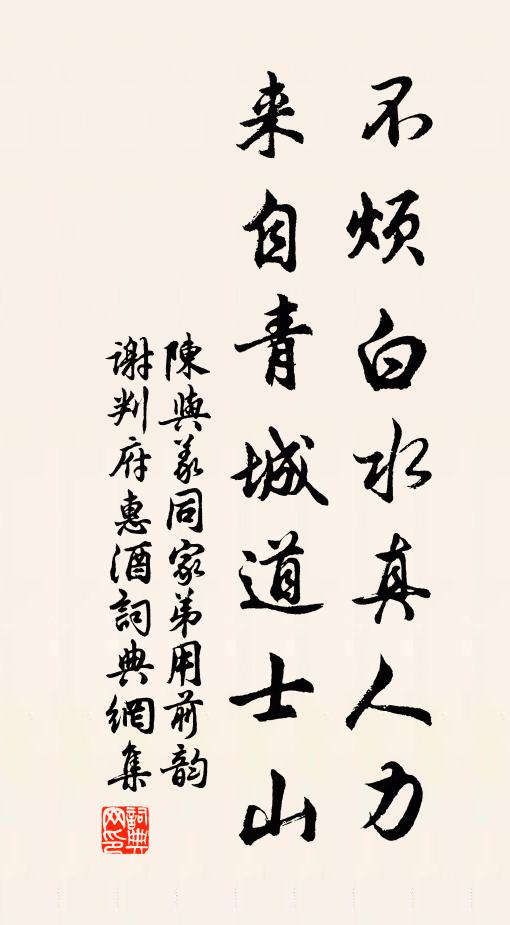 不烦白水真人力
来自青城道士山
陳與义同家弟用前韵
谢判府惠酒詞典網集
詞典网印